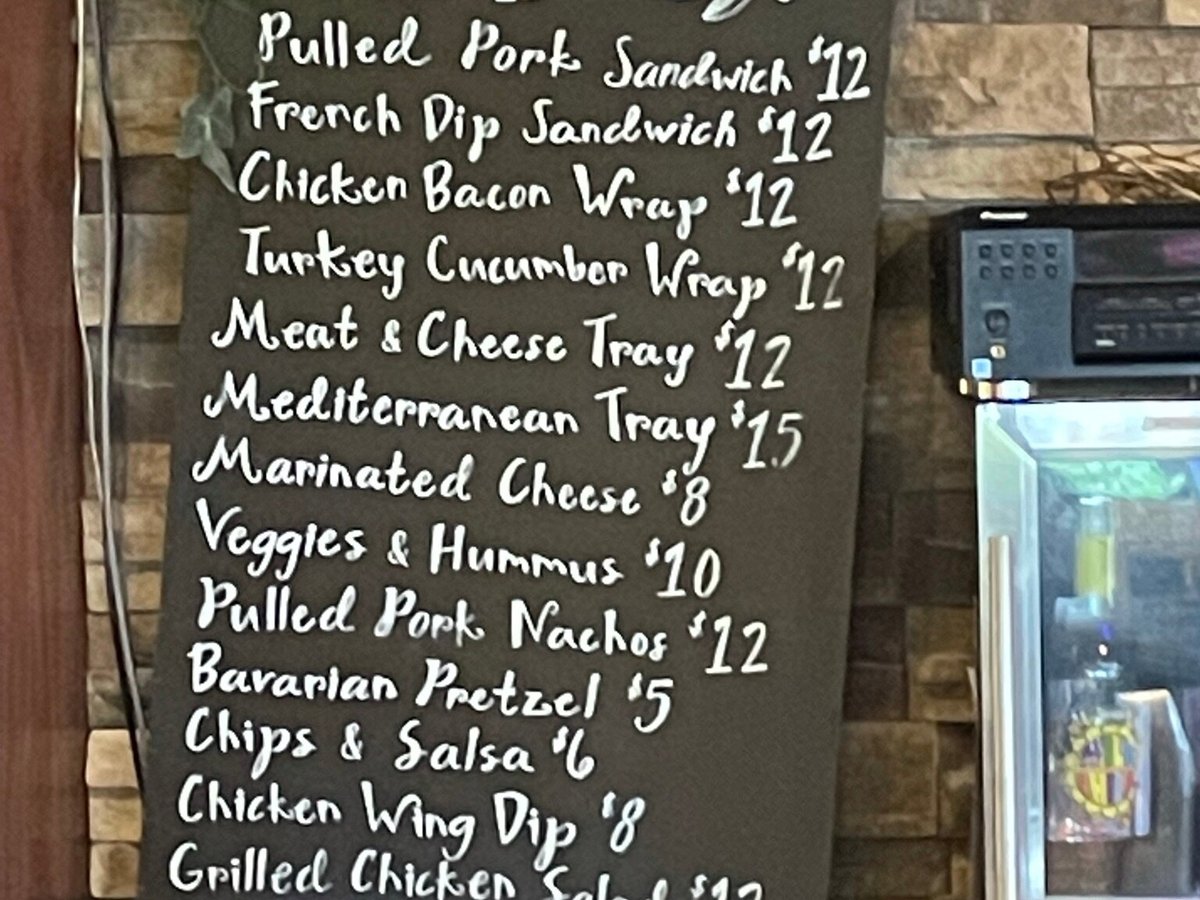 Pulled Pork Sandwich $12
French Dip Sandwich $12
Chicken Bacon Wrap $12
Turkey Cucumber Wrap $12
Meat & Cheese Tray $12
Mediterranean Tray $15
Marinated Cheese $8
Veggies & Hummus $10
Pulled Pork Nachos $12
Bavarian Pretzel $5
Chips & Salsa $6
Chicken Wing Dip $8
Grilled Chicken Salad $12